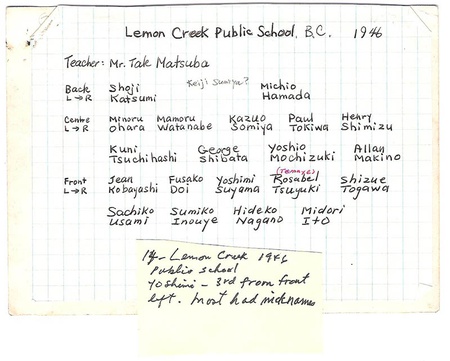 Lemon Creek Public School, B.C. 1946
Teacher: Mr. Tak Matsuba
Keiji Sumiya?
Back Shoji Michio
L → R Katsumi Hamada
Centre Minoru Mamoru Kazuo Paul Henry
L → R Ohara Watanabe Somiya Tokiwa Shimizu
Kuni George Yoshio Allan
Tsuchihashi Shibata Mochizuki Makino
(Tamaye)
Front Jean Fusako Yoshimi Rosabel Shizue
L → R Kobayashi Doi Suyama Tsuyuki Togawa
Sachiko Sumiko Hideko Midori
Usami Inouye Nagano Ito
Lemon Creek 1946
Public School
Yoshimi - 3rd from front
left. Most had nicknames